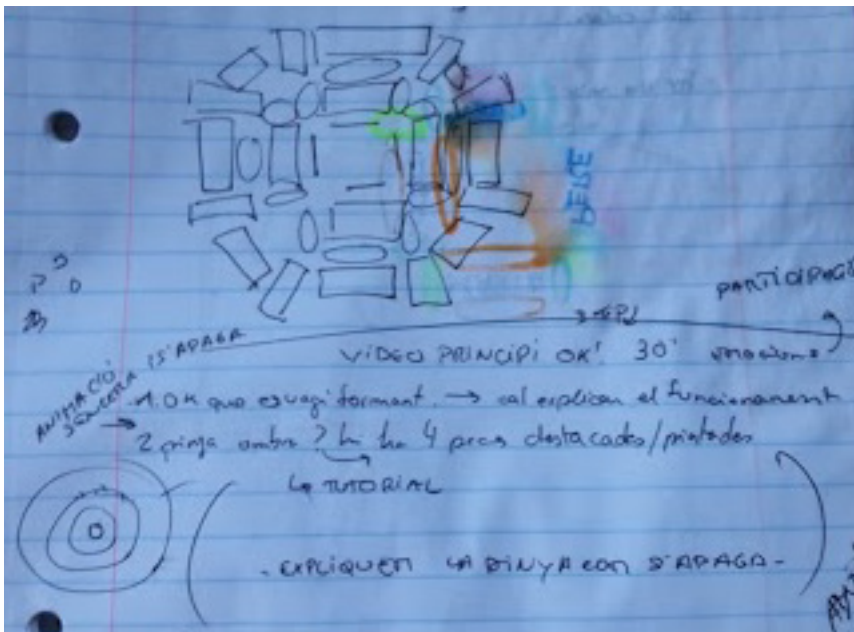 PERE
PARTICIPACIÓ
ANIMACIÓ
SENCERA i S'APAGA
VIDEO PRINCIPI OK! 30'
1. OK que es vagi formant. → cal explicar el funcionament
→ 2 pinya ombra? hi ha 4 peces destacades/pintades
↳ TUTORIAL
- EXPLIQUEN LA PINYA COM S'APAGA -